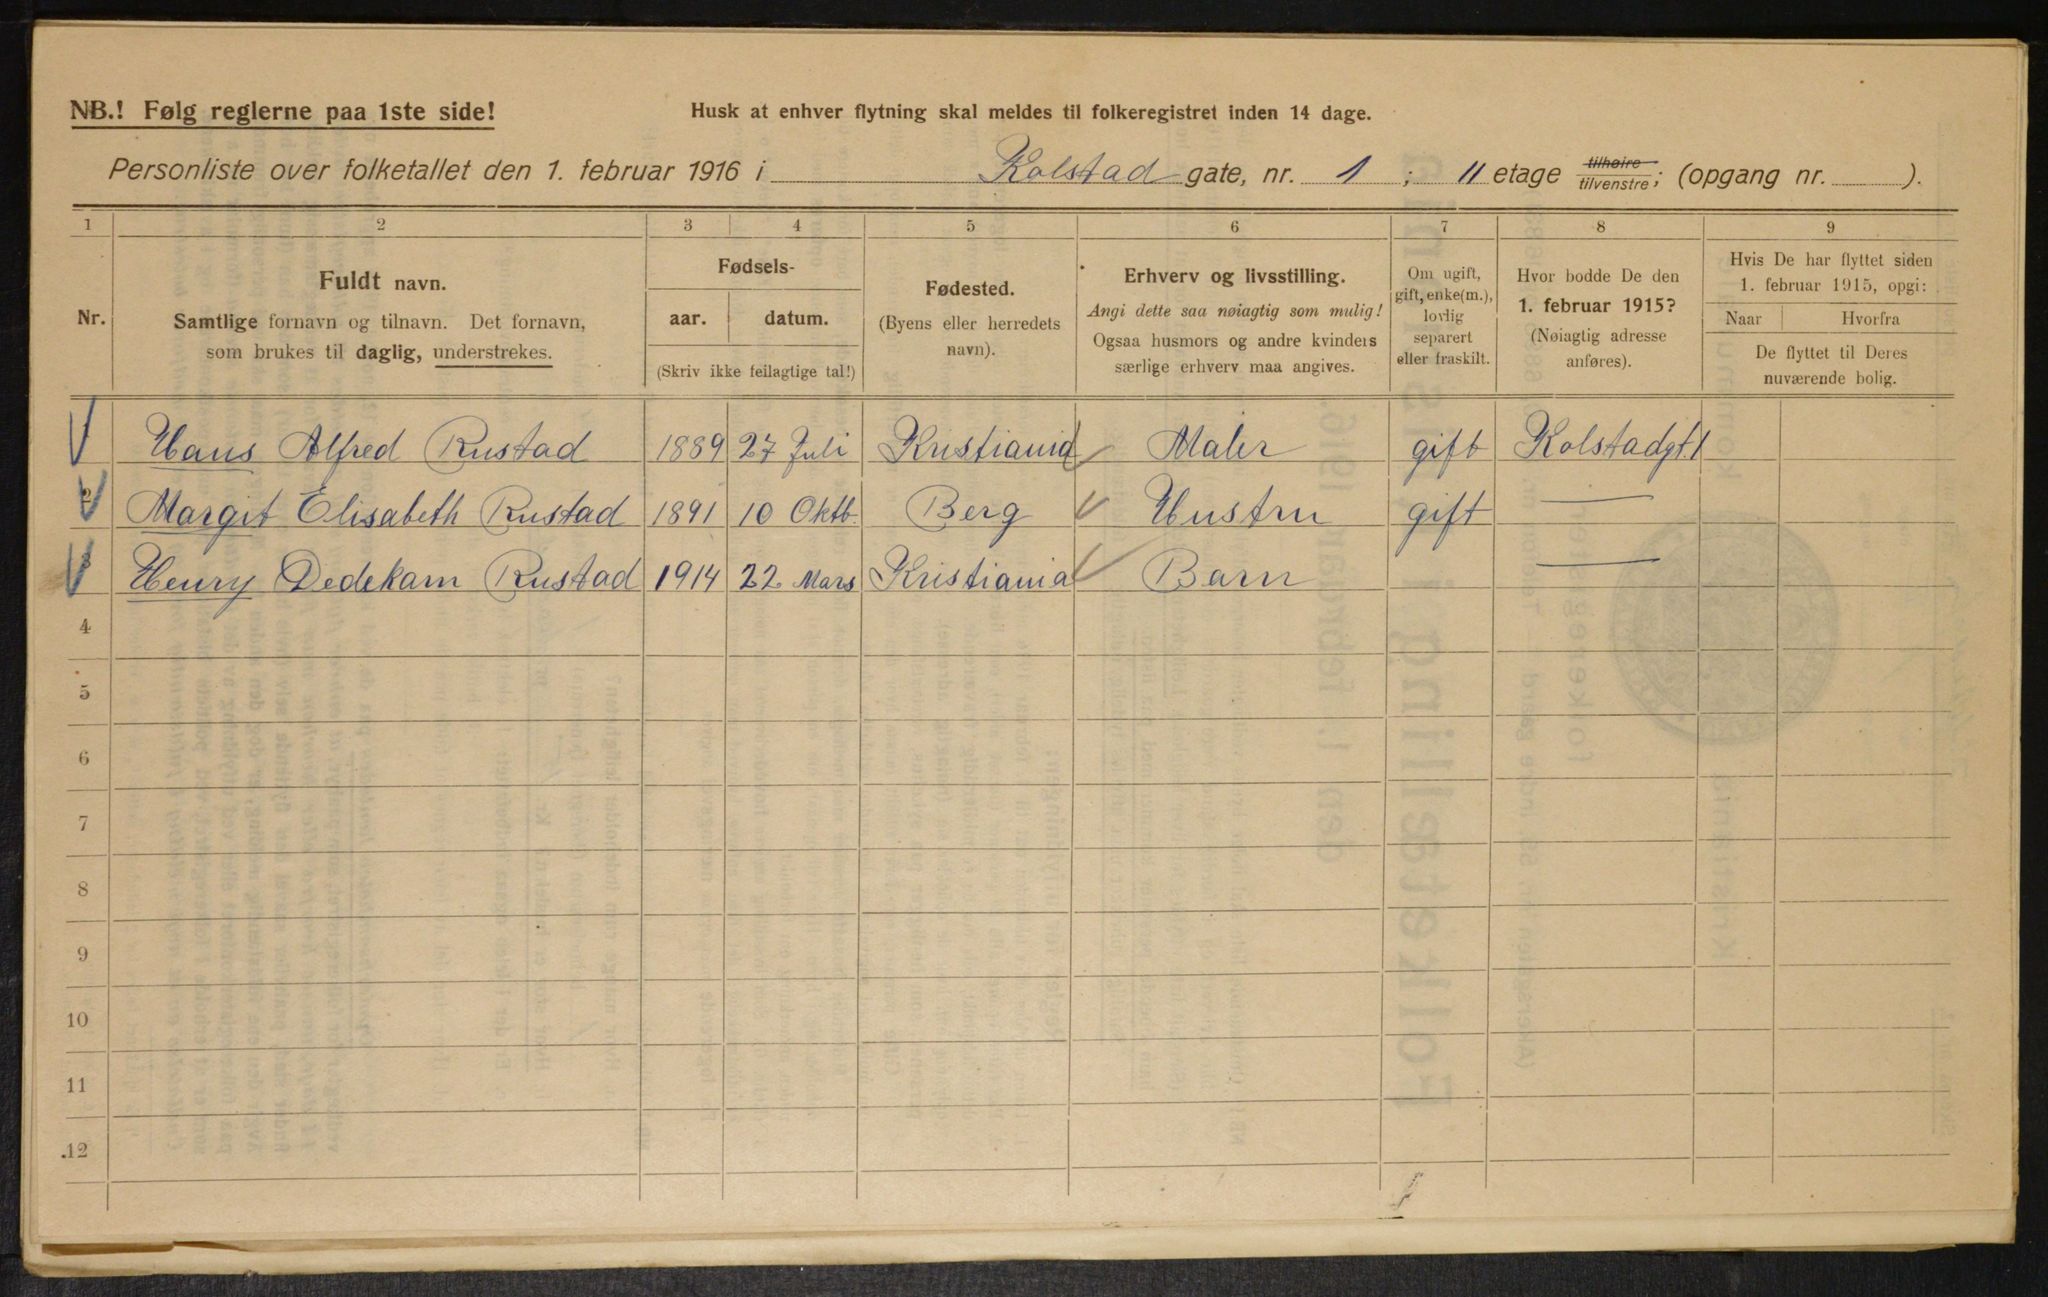 NB.! Følg reglerne paa 1ste side!
Husk at enhver flytning skal meldes til folkeregistret inden 14 dage.
Personliste over folketallet den 1. februar 1916 i Kolstad gate, nr. 1 ; II etage tilhøire/tilvenstre; (opgang nr. ).
1 2 3 4 5 6 7 8 9
Nr.
Fuldt navn.
Samtlige fornavn og tilnavn. Det fornavn,
som brukes til daglig, understrekes.
Fødsels-
aar. datum.
(Skriv ikke feilagtige tal!)
Fødested.
(Byens eller herredets
navn).
Erhverv og livsstilling.
Angi dette saa nøiagtig som mulig!
Ogsaa husmors og andre kvinders
særlige erhverv maa angives.
Om ugift,
gift, enke(m.),
lovlig
separert
eller fraskilt.
Hvor bodde De den
1. februar 1915?
(Nøiagtig adresse
anføres).
Hvis De har flyttet siden
1. februar 1915, opgi:
Naar Hvorfra
De flyttet til Deres
nuværende bolig.
1 Hans Alfred Rustad 1889 27 Juli Kristiania Maler gift Kolstadgt 1
2 Margit Elisabeth Rustad 1891 10 Oktb. Berg Hustru gift —
3 Henry Dedekam Rustad 1914 22 Mars Kristiania Barn —
4
5
6
7
8
9
10
11
12